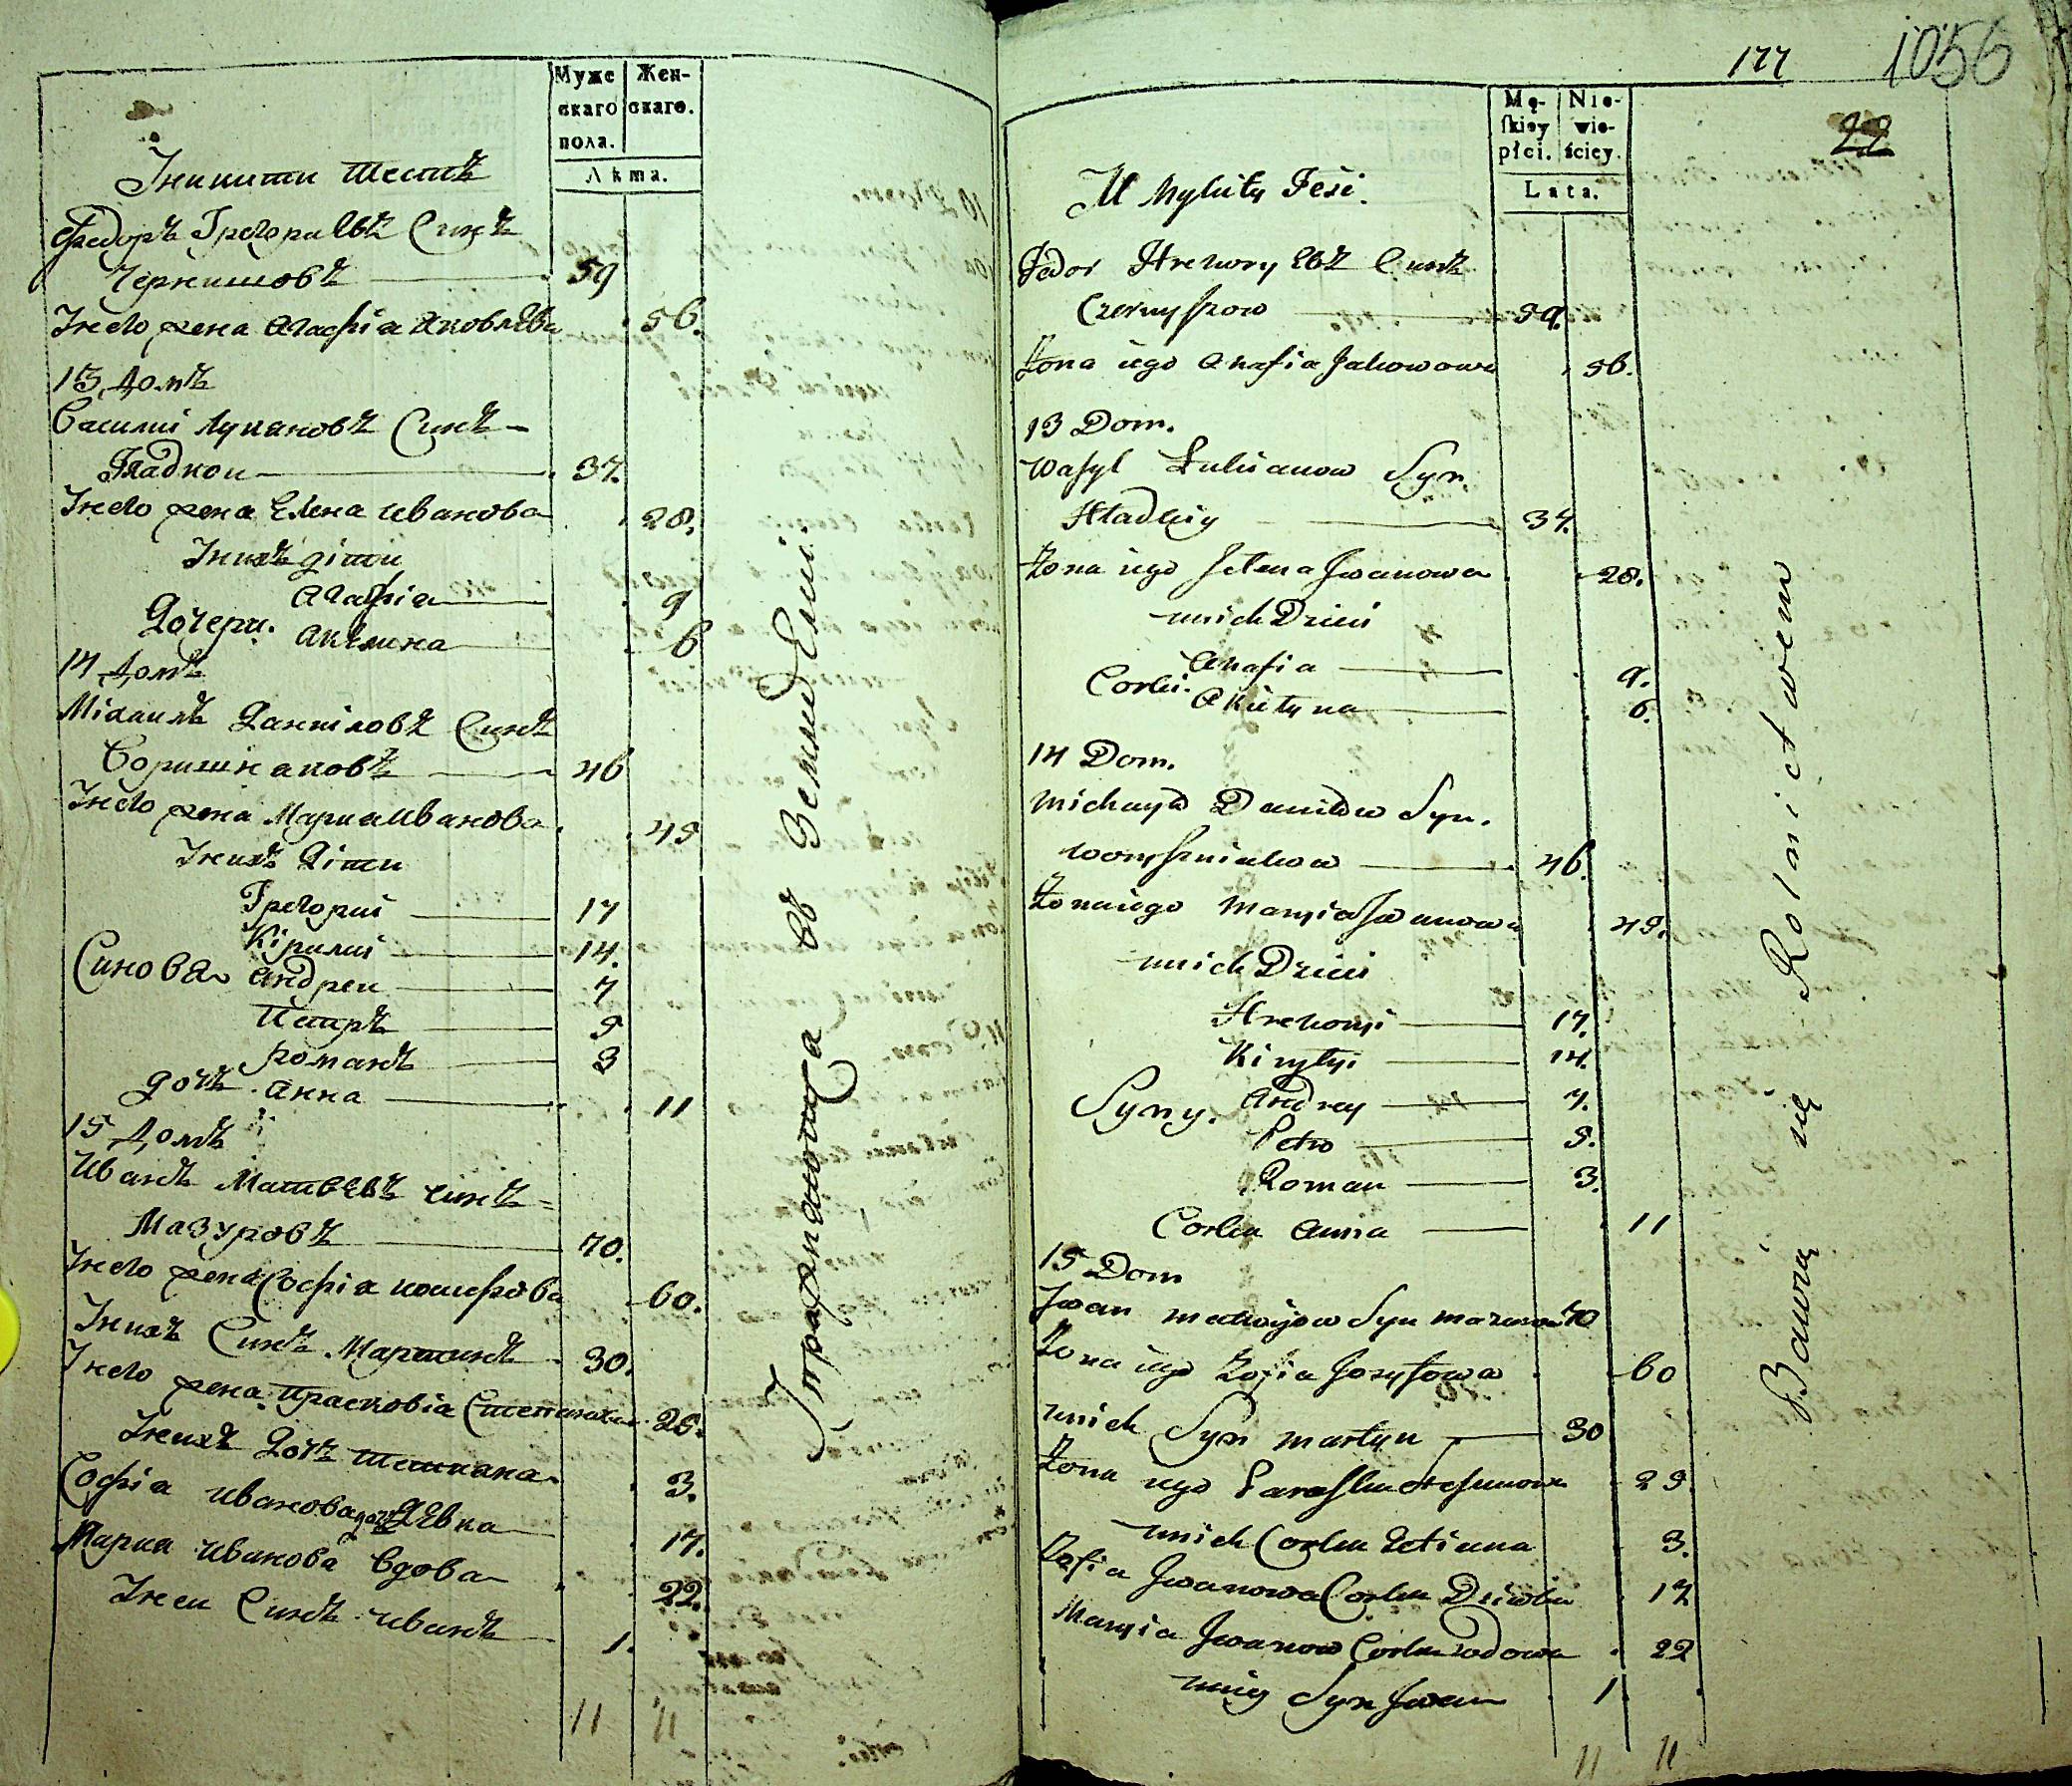 Муже
скаго
пола.
Жен-
скаго.
Лѣта.
Уникити тесть
Федоръ Грегориевъ Синъ
Чернишовъ 59
Унего жена Агафiа Яковлева 56.
13 Домъ
Василий Лукановъ Синъ
Гладкои 37.
Унего жена Елена иванова 28.
Унихъ дiти
Агафiа 9
Дочери.
Акилина 6
14 Домъ
Мiхаилъ Данiловъ Синъ
Воришнаковъ 46
Унего жена Мариа Иванова 45
Унихъ Дiти
Грегорий 17
Кiрилий 14.
Синова Андреи 7
Петръ 5
Романъ 3
Дочъ Анна 11
15 Домъ
Иванъ Матвеевъ синъ
Мазуровъ 70.
Унего жена Софiа иосифова 60.
Унихъ Синъ Мартинъ 30.
Унего жена Прасковiа 25.
Унихъ Дочъ 3.
Софiа иванова дочъ Девка 17.
Мариа иванова вдова 22.
Унеи Синъ иванъ 1.
11 11
Упражнаютца въ Земледелии.
177
1056
22
Mę-
skiey
płci.
Nie-
wie-
ściey.
Lata.
U Mykity Teści.
Fedor Hrehory евъ Синъ
Czernyszow 59.
Żona iego Ahafia Jakowowa 56.
13 Dom.
Wasyl Lukianow Syn.
Hładkiy 37.
Żona iego Jelena Jwanowa 28.
unich Dzieci
Ahafia 9.
Corki.
Akilyna 6.
14 Dom.
Michayło Daniłow Syn.
Woryszniakow 46.
Żona iego Maryia Jwanowa 45.
unich Dzieci
Hrehoryi 17.
Kiryłyi 14.
Syny. Andrey 7.
Petro 5.
Roman 3.
Corka Anna 11
15 Dom
Jwan Matwijow Syn Mazurow 70
Żona iego Zofia Jozyfowa 60
unich Syn Martyn 30
Żona iego Paraska Stefanowa 25
unich Corka Tetiana 3.
Zofia Jwanowa Corka Dziwka 17
Maryia Jwanow Corka wdowa 22
uniey Syn Jwan 1
11 11
Bawią się Rolnictwem